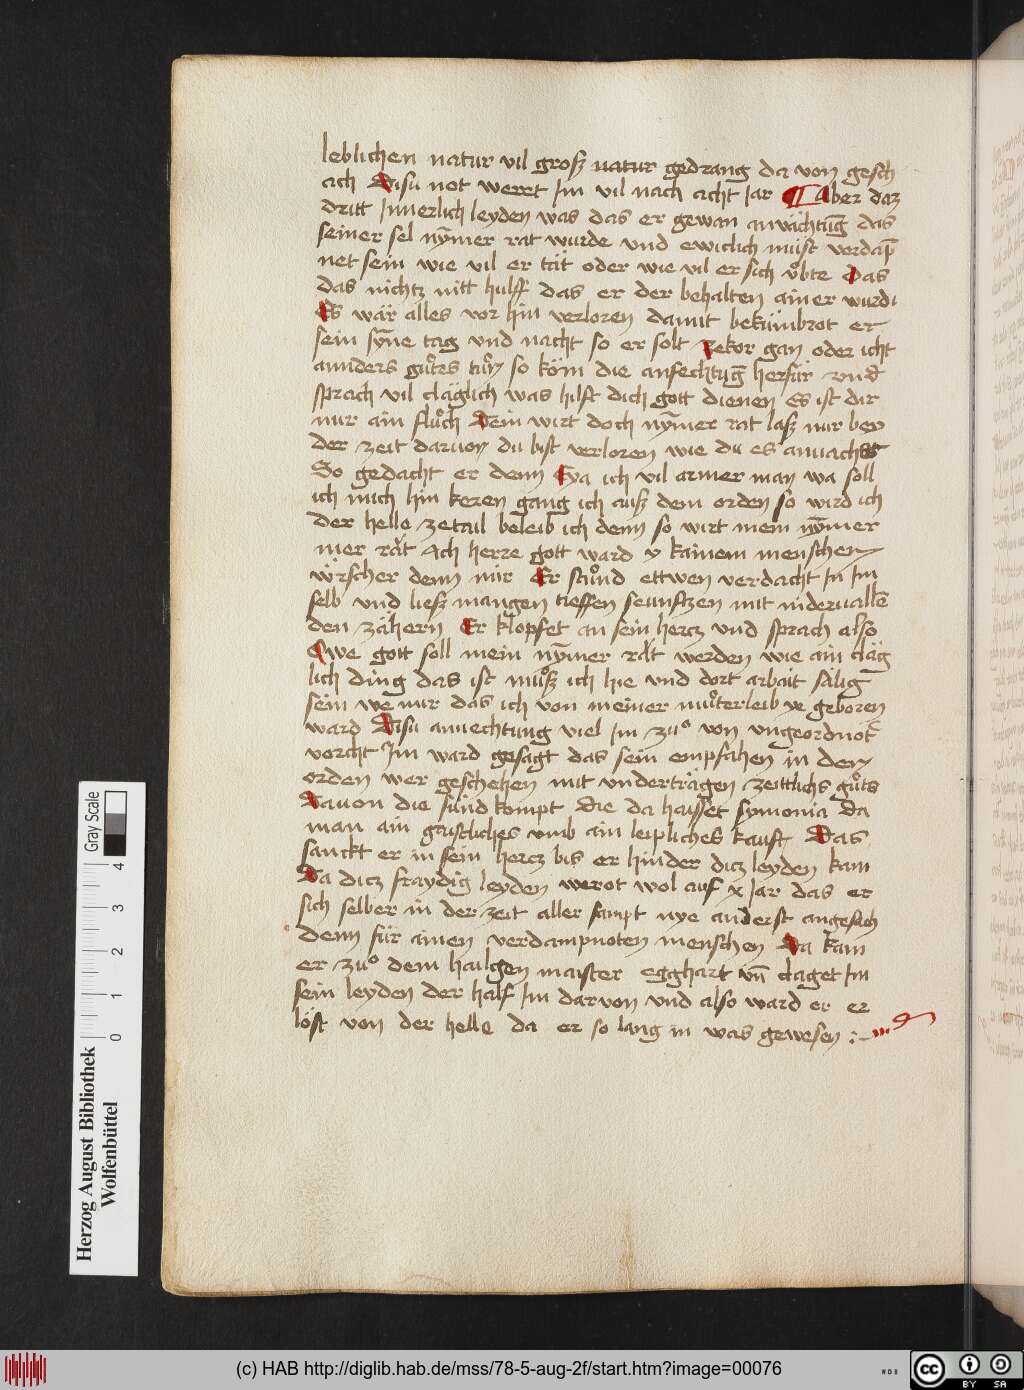 leblichen natur vil grosz natur gedrang da von gesch
ach Disu not weret Jm vil nach acht Jar ¶ Aber daz
dritt Jnnerlich leyden was das er gewan anvächtūg das
seiner sel nȳmer rat wurde vnd ewiclich müst verdap̄
net sein wie vil er tät oder wie vil er sich vͦbte Das
das nichtz nitt hulff das er der behalten ainer wurdi
Es wär alles vor hin verloren damit bekümbrot er
sein syn̄e tag vnd nacht so er solt zekor gan oder icht
annders guͦtes tuͦn so köm die anfechtūg herfür vnd
sprach vil cläglich was hilft dich gott dienen Es ist dir
nur ain fluͦch Dein wirt doch nȳmer rat lasz nur bey
der zeit daruon du bist verloren wie du es anuachst
So gedacht er denn Eya ich vil armer man wa soll
ich mich hin keren gang ich ausz dem orden so wird ich
der helle zetail beleib ich denn so wirt mein nȳmer
mer rät Ach herre gott ward y kainem menschen
wirscher denn mir Er stuͦnd ettwen verdacht in Jm
selb vnd liesz mangen tieffen seunftzen mit nideruallē
den zähern Er klopfet an sein hertz vnd sprach also
Owe gott soll mein nȳmer rät werden wie ain cläg
lich ding das ist muͦsz ich hie vnd dort arbait sälig
sein we mir das ich von meiner muͦterleib ye geboren
ward Disu anuechtung viel Jm zuͦ von vngeordnoͭ
vorcht Jm ward gesagt das sein empfahen in den
orden wer geschehen mit underträgen zeittlichs guͦts
Dauon die sünd kompt die da haisset symonia da
man ain gaistliches vmb ain leipliches kauft Das
sanckt er in sein hertz bis er hinder ditz leyden kam
Da ditz fraydig leyden werot wol auf x Jar das er
sich selber in der zeit aller sampt nye anderst angesach
denn für ainen verdampnoten menschen Da kam
er zuͦ dem hailgen maister egghart vn̄ claget Jm
sein leyden der half Jm darvon vnd also ward er er
löst von der helle da er so lang in was gewesen :~
Herzog August Bibliothek
Wolfenbüttel
0 1 2 3 4
Gray Scale
(c) HAB http://diglib.hab.de/mss/78-5-aug-2f/start.htm?image=00076
cc BY SA